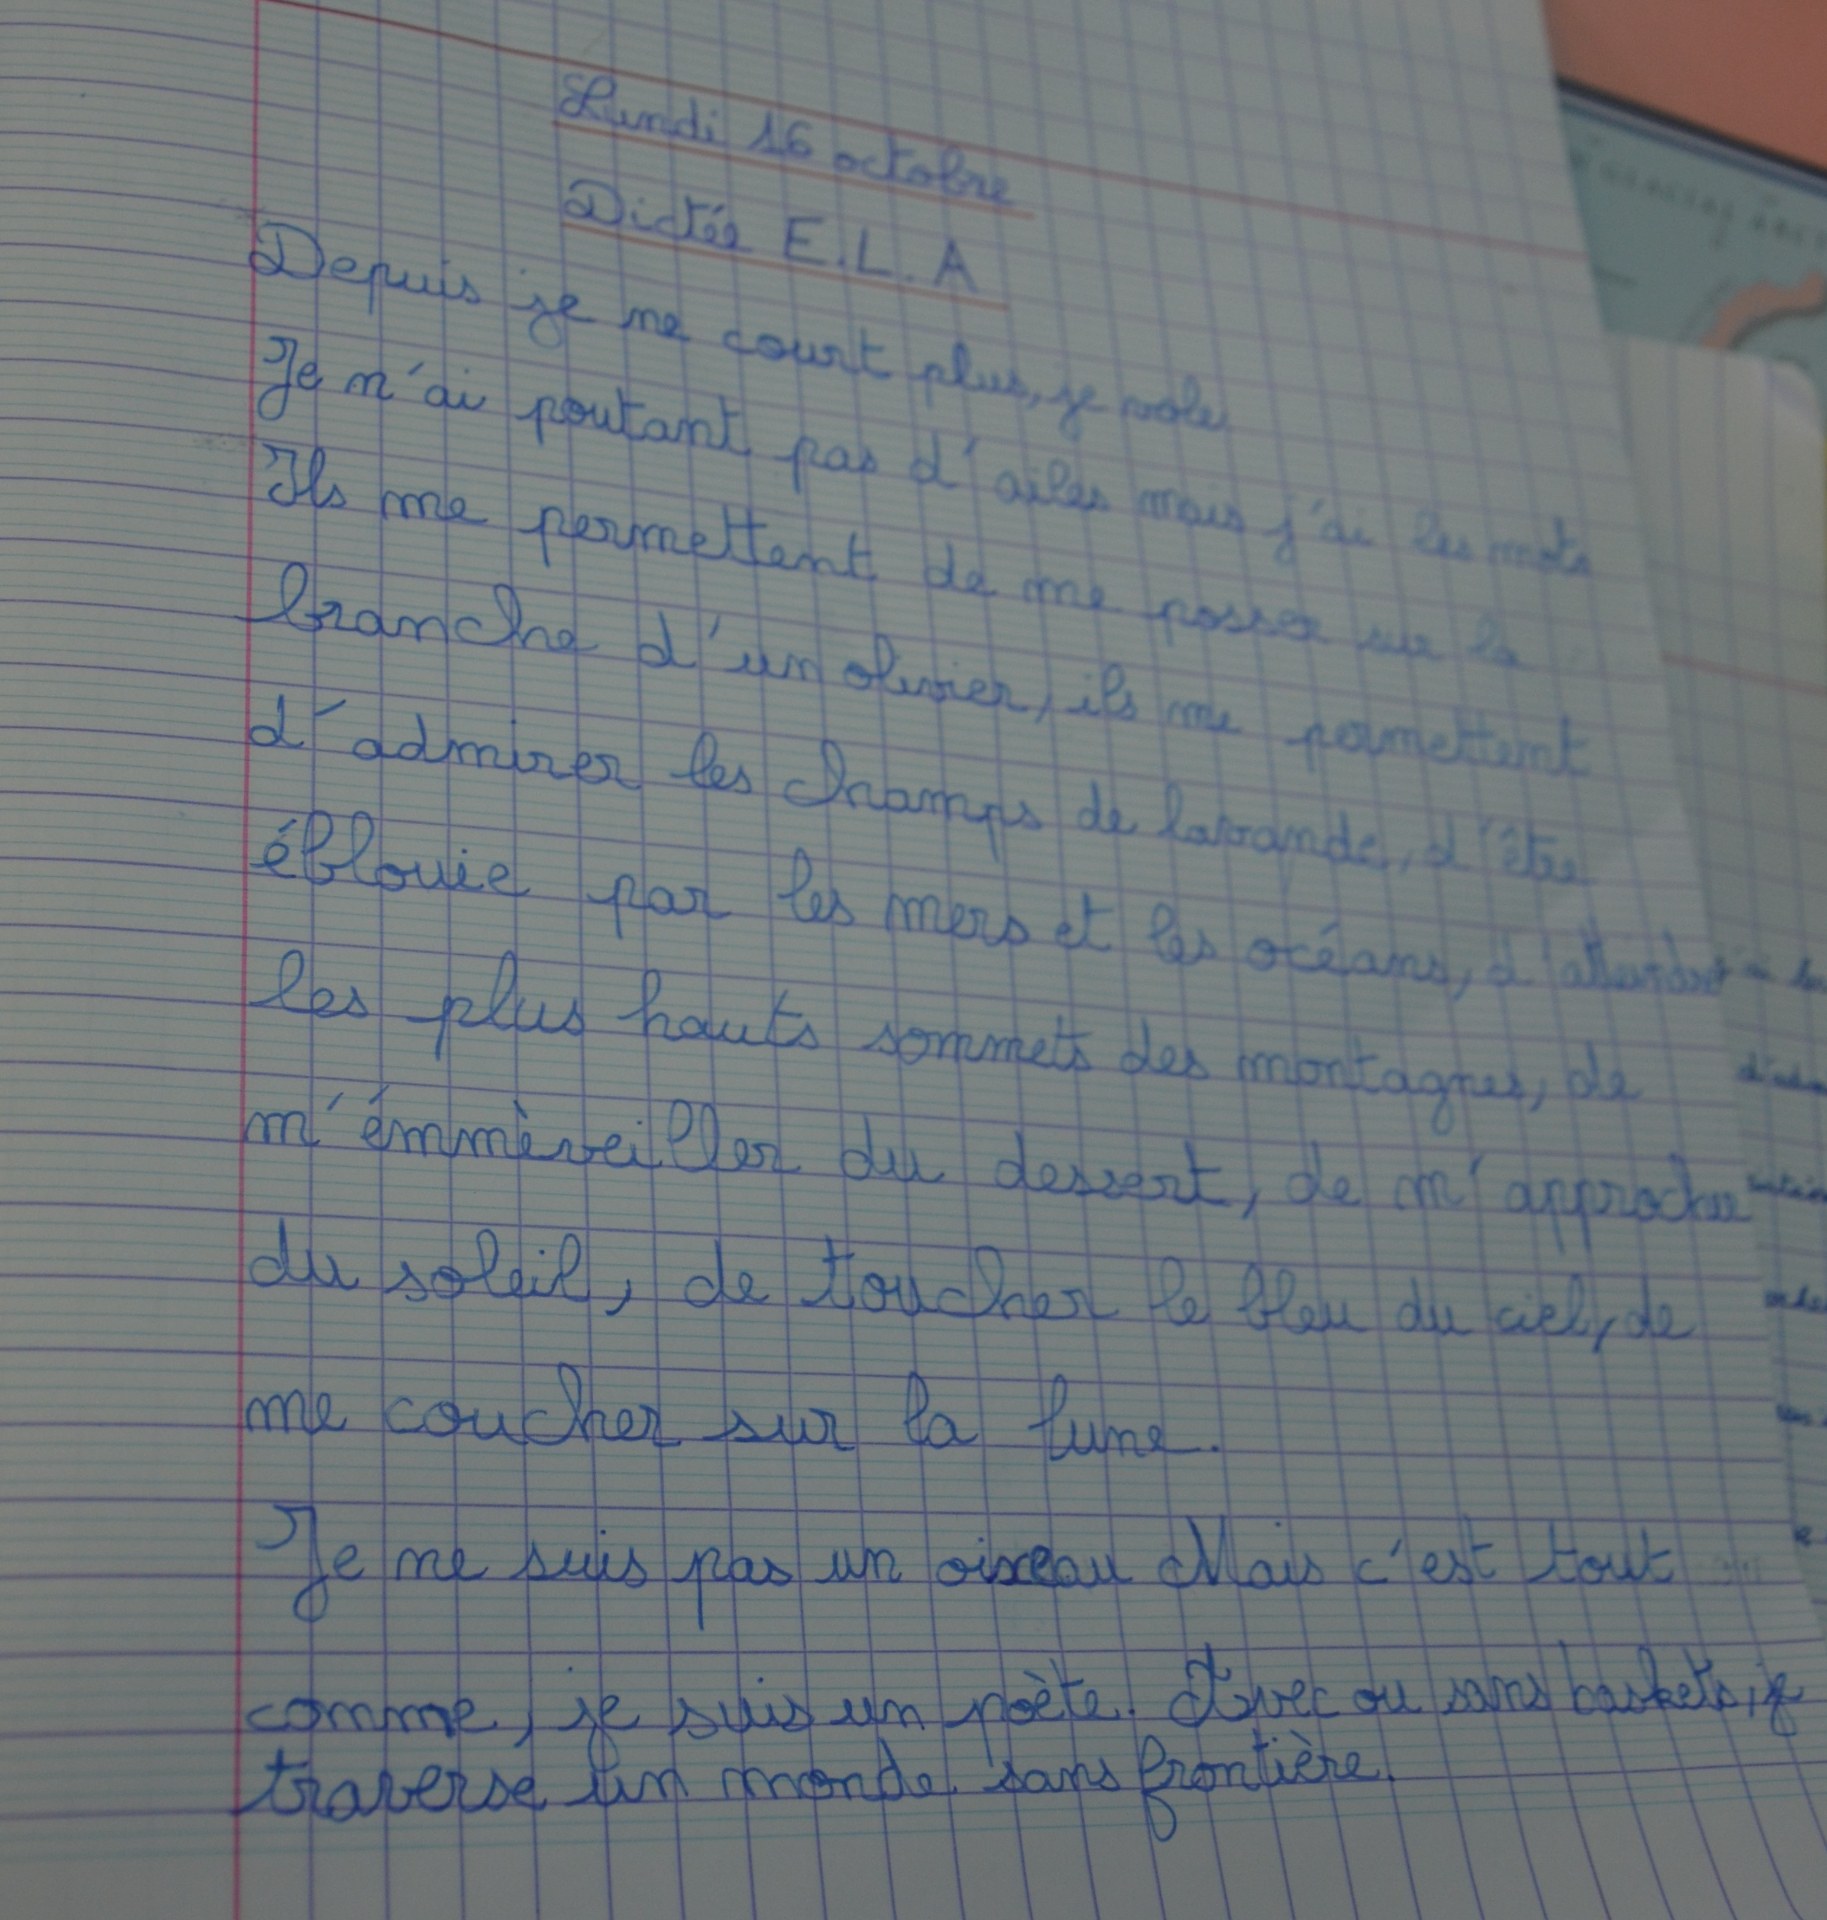 Lundi 16 octobre
Dictée E.L.A
Depuis je ne court plus, je vole
Je n'ai poutant pas d'ailes mais j'ai les mots
Ils me permettent de me posser sur la
branche d'un olivier, ils me permettent
d'admirer les champs de lavande, d'être
éblouie par les mers et les océans,
les plus hauts sommets des montagnes, de
m'émmèrveiller du dessert, de m'approcher
du soleil, de toucher le bleu du ciel, de
me coucher sur la lune.
Je ne suis pas un oiseau Mais c'est tout
comme, je suis un poète. Avec ou sans baskets, je
traverse un monde sans frontière.